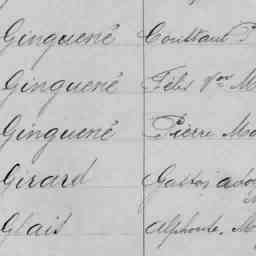 Ginguené Constant
Ginguené Félix Vor M
Ginguené Pierre Ma
Girard Gaston ado
Glais alphonse. M